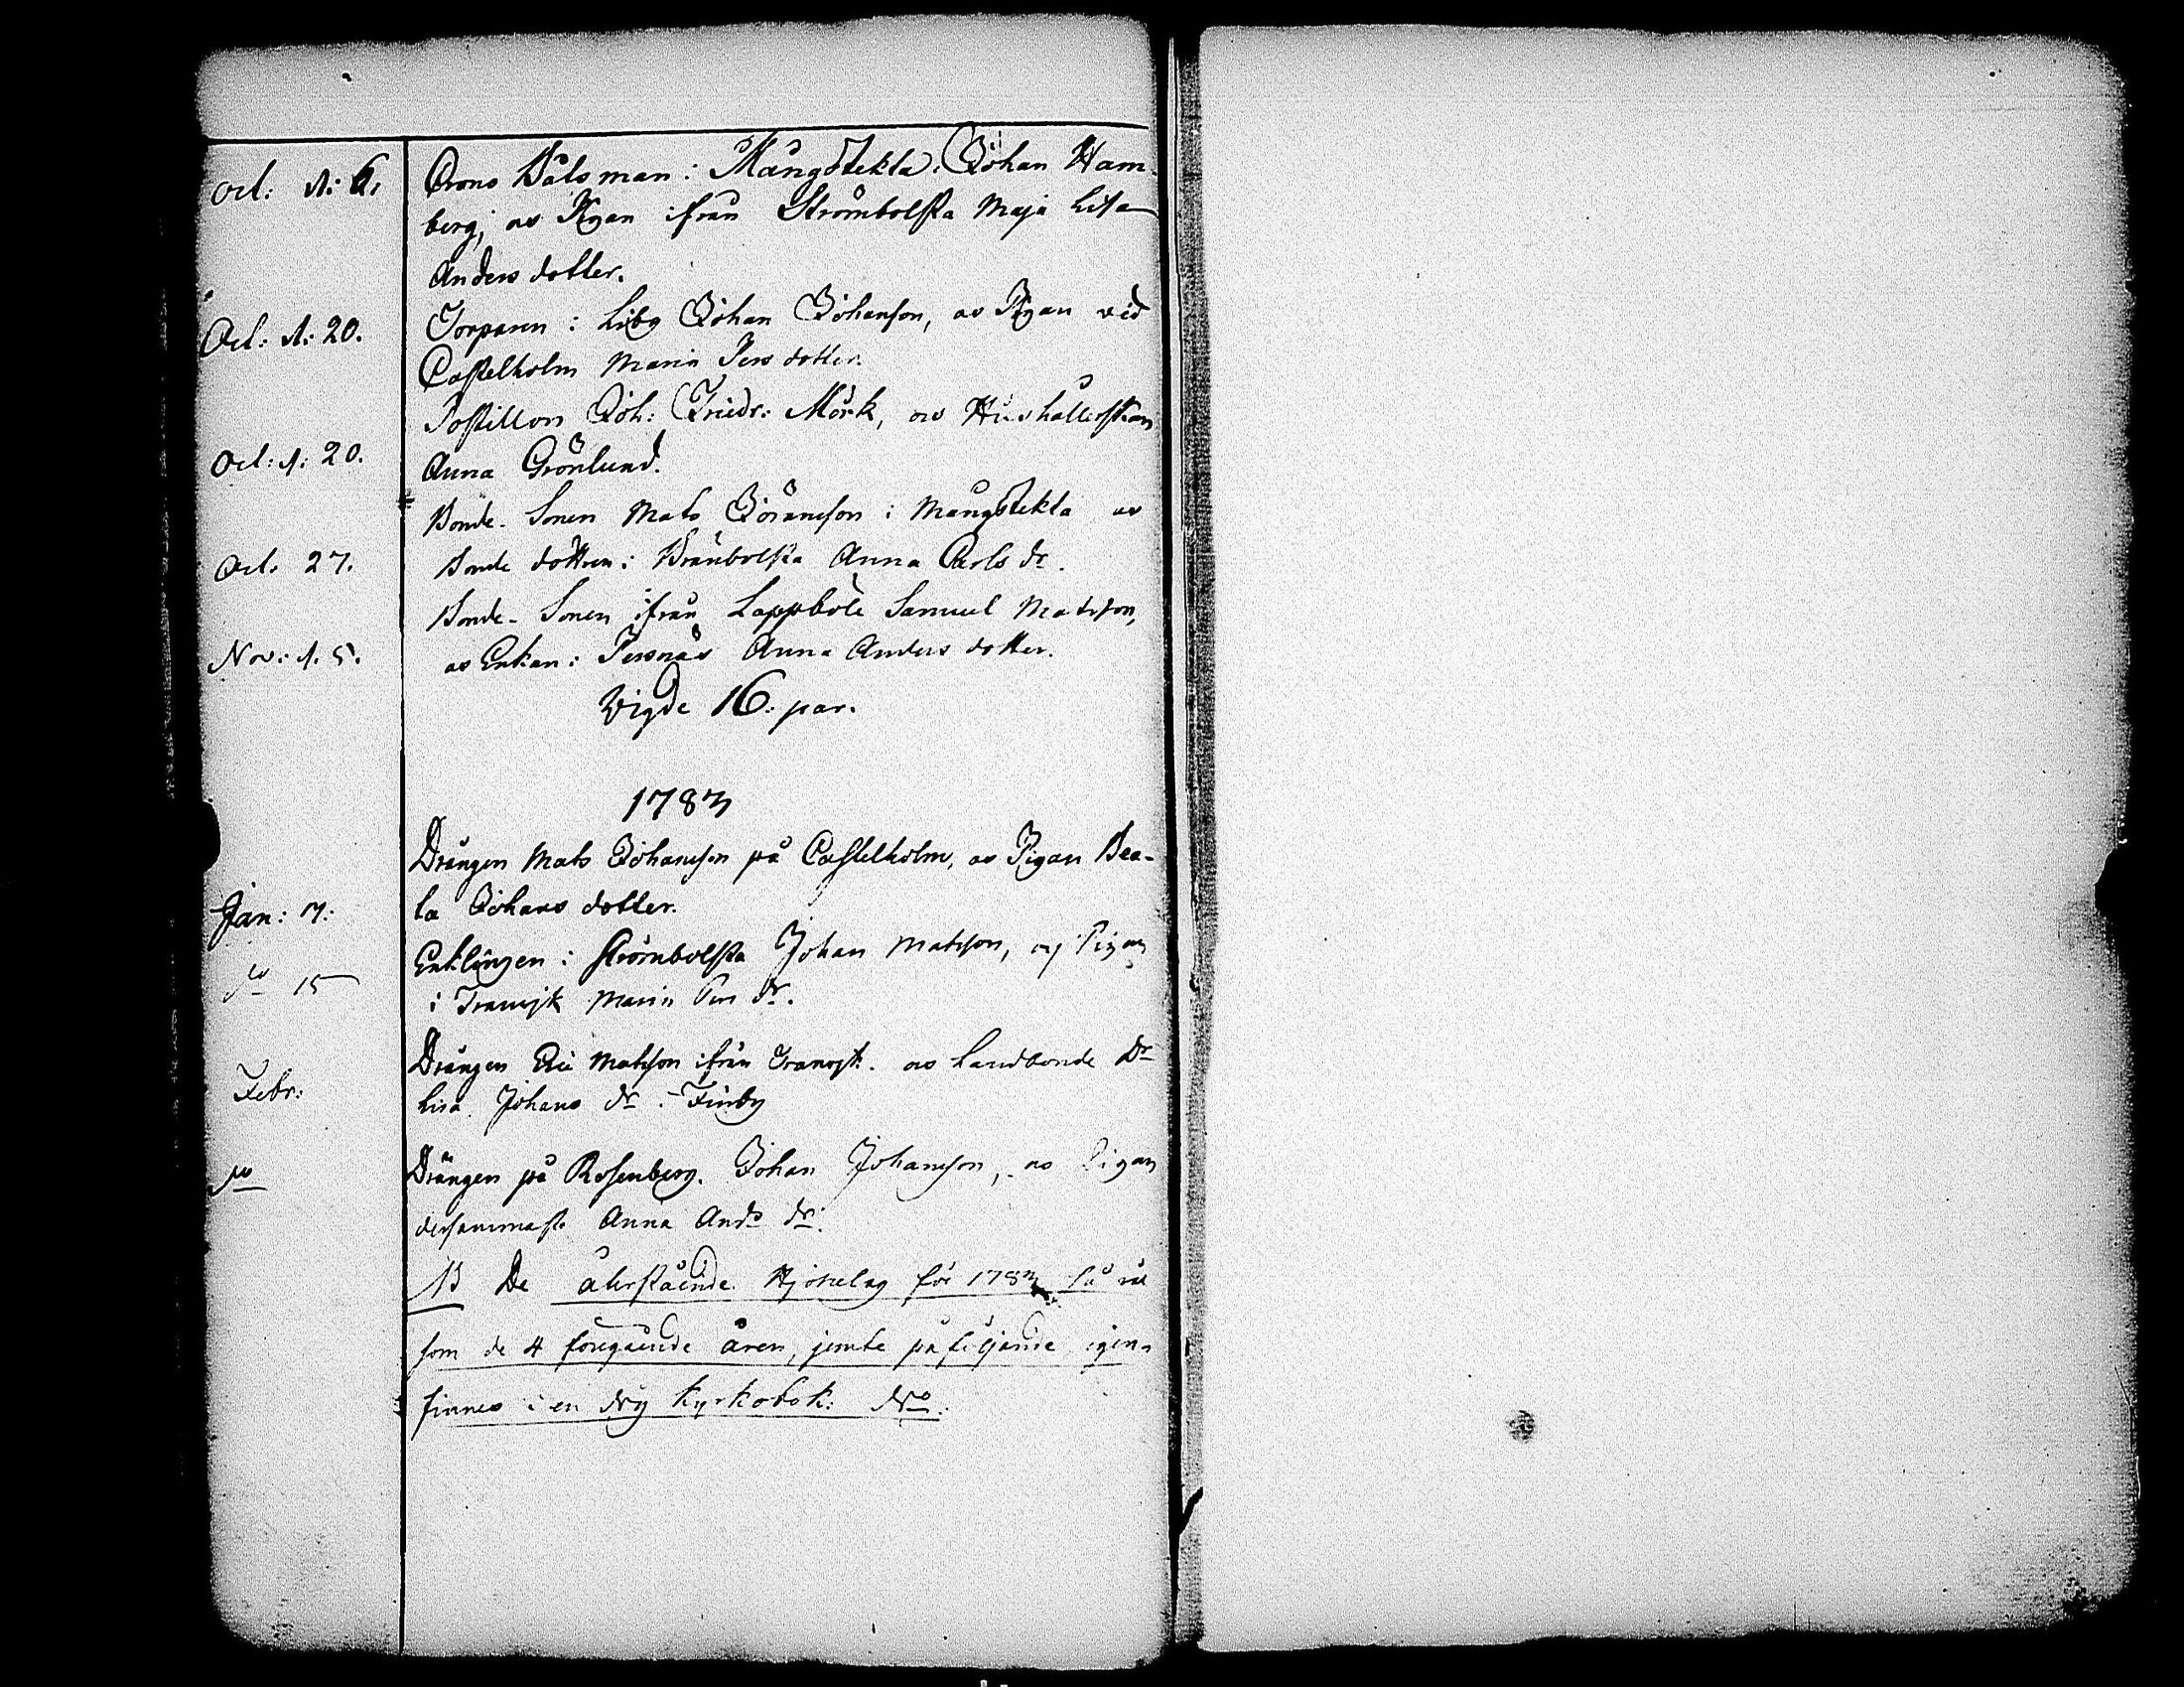 Oct: d: 6. Crono Båtsman i Mångstekta Johan Ham-
berg, oc Pigan ifrån Strömbolsta Maja Lisa
Anders dotter.
Oct: d: 20. Torparen i Liby Johan Johanson, oc Pigan vid
Castelholm Maria Pers dotter.
Postillion Joh: Friedr: Mörk, oc Hushållerskan
Oct: d: 20. Anna Grönlund.
Bonde-Sonen Mats Göranson i Mångstekta oc
Oct. 27. Bonde dottren i Bränbolsta Anna Carls dr.
Bonde-Sonen ifrån Lappböle Samuel Matsson,
Nov: d. 5. oc Enkan i Persnäs Anna Anders dotter.
Vigde 16: par.
1783
Drängen Mats Johanson på Castelholm, oc Pigan Bea-
Jan: 7: ta Johans dotter.
Enklingen i Strömbolsta Johan Matsson, oc Pigan
do 15 i Tranvijk Maria Pers dr.
Drängen Eric Matsson ifrån Tranvjk. oc Landbonde Dr
Febr: Lisa Johans dr i Finby
do Drängen på Rosenberg. Johan Johanson, oc Pigan
dersammast. Anna Ands dr.
NB De återstående Hjonelag för 1783 så väl
som de 4 föregående åren, jemte påföljande igen-
finnes i en Ny Kyrkobok: No.